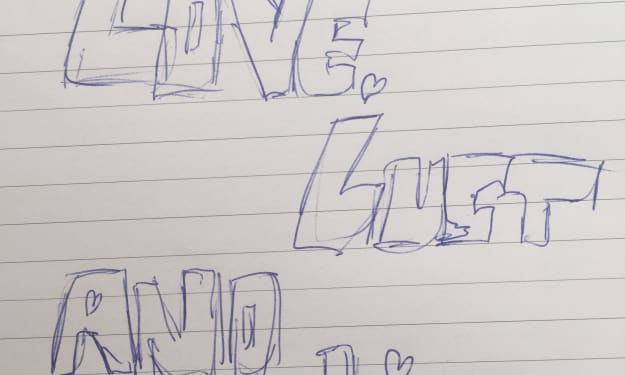 LOVE
LUST
AND